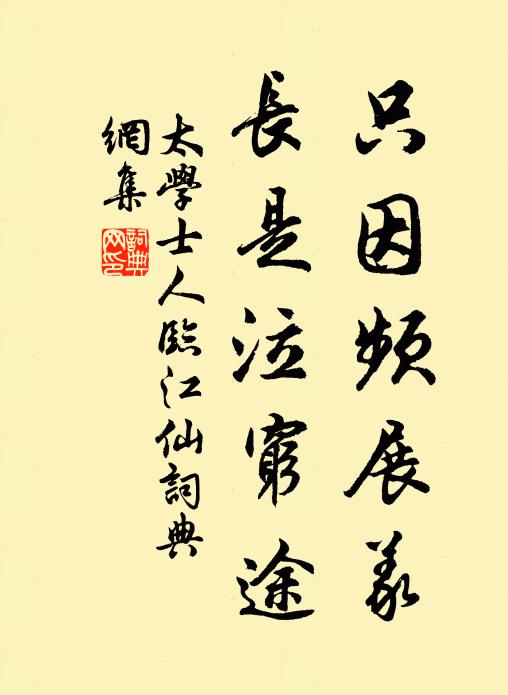 只因頻展義
長是泣窮途
太學士人臨江仙詞典
網集
詞典
网印